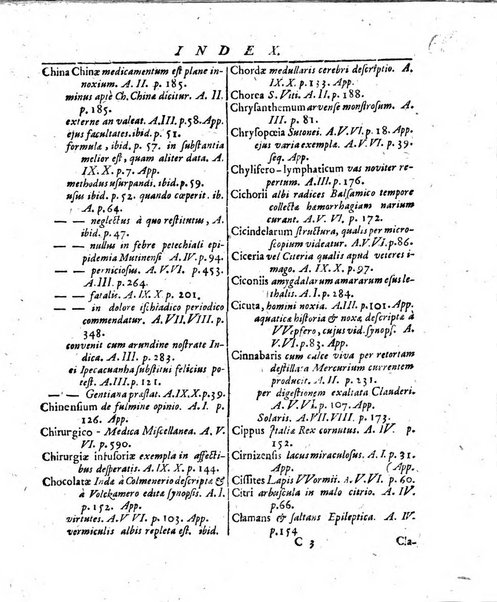 INDEX.
China Chinæ medicamentum est plane in-
noxium. A. II. p. 185.
minus apte Ch. China dicitur. A. II.
p. 185.
externe an valeat. A. III. p. 58. App.
ejus facultates. ibid. p. 51.
formulæ, ibid. p. 57. in substantia
melior est, quam aliter data. A.
IX. X. p. 7. App.
methodus usurpandi. ibid. p. 59.
usus ibid. p. 52. quando cœperit. ib.
A. p. 64.
— — neglectus à quo restitutus, A.
ibid. p. 47.
— — nullus in febre petechiali epi-
pidemia Mutinensi A. IV. p. 94.
— — perniciosus. A. V. VI. p. 453.
A. III. p. 264.
— — fatalis. A. IX. X p. 201.
— — in dolore ischiadico periodico
commendatur. A. VII. VIII. p.
348.
convenit cum arundine nostrate In-
dica. A. III. p. 123.
ei Ipecacuanha substitui felicius po-
test. A. III. p. 121.
— — Gentiana præstat. A. IX. X. p. 39.
Chinensium de fulmine opinio. A. I. p.
126. App.
Chirurgico - Medica Miscellanea. A. V.
VI. p. 590.
Chirurgiæ infusoriæ exempla in affecti-
bus desperatis. A. IX. X. p. 144.
Chocolatæ Inda à Colmenerio descripta &
à Volckamero edita synopsis. A. I.
p. 152. App.
virtutes. A. V. VI. p. 103. App.
vermiculis albis repleta est. ibid.
Chordæ medullaris cerebri descriptio. A.
IX. X p. 133. App.
Chorea S. Viti. A. II. p. 188.
Chrysanthemum arvense monstrosum. A.
III. p. 81.
Chrysopœia Sutonei. A. V. VI. p. 6. App.
ejus varia exempla. A. V. VI. p. 39.
seq. App.
Chylifero - lymphaticum vas noviter re-
pertum. A. III. p. 176.
Cichorii albi radices Balsamico tempore
collectæ hæmorrhagiam narium
curant. A. V. VI. p. 172.
Cicindelarum structura, qualis per micro-
scopium videatur. A. V. VI. p. 86.
Ciceria vel Citeria qualis apud veteres i-
mago. A. IX. X. p. 97.
Ciconiis amygdalarum amararum esus le-
thalis. A. I. p. 284.
Cicuta, homini noxia. A. III. p. 101. App.
aquaticæ historia & noxæ descripta à
VVepfero, cujus vid. synops. A.
V. VI. App.
Cinnabaris cum calce viva per retortam
destillata Mercurium currentem
producit. A. II. p. 231.
per digestionem exaltata Clauderi.
A. V. VI. p. 107. App.
Solaris. A. VII. VIII. p. 273.
Cippus Italiæ Rex cornutus. A. IV. p.
152.
Cirnizensis lacus miraculosus. A. I. p. 31.
App.
Cissites Lapis VVormii. A. V. VI. p. 60.
Citri arbuscula in malo citrio. A. IX.
p. 66.
Clamans & saltans Epileptica. A. IV.
p. 154
C 3
Cla-